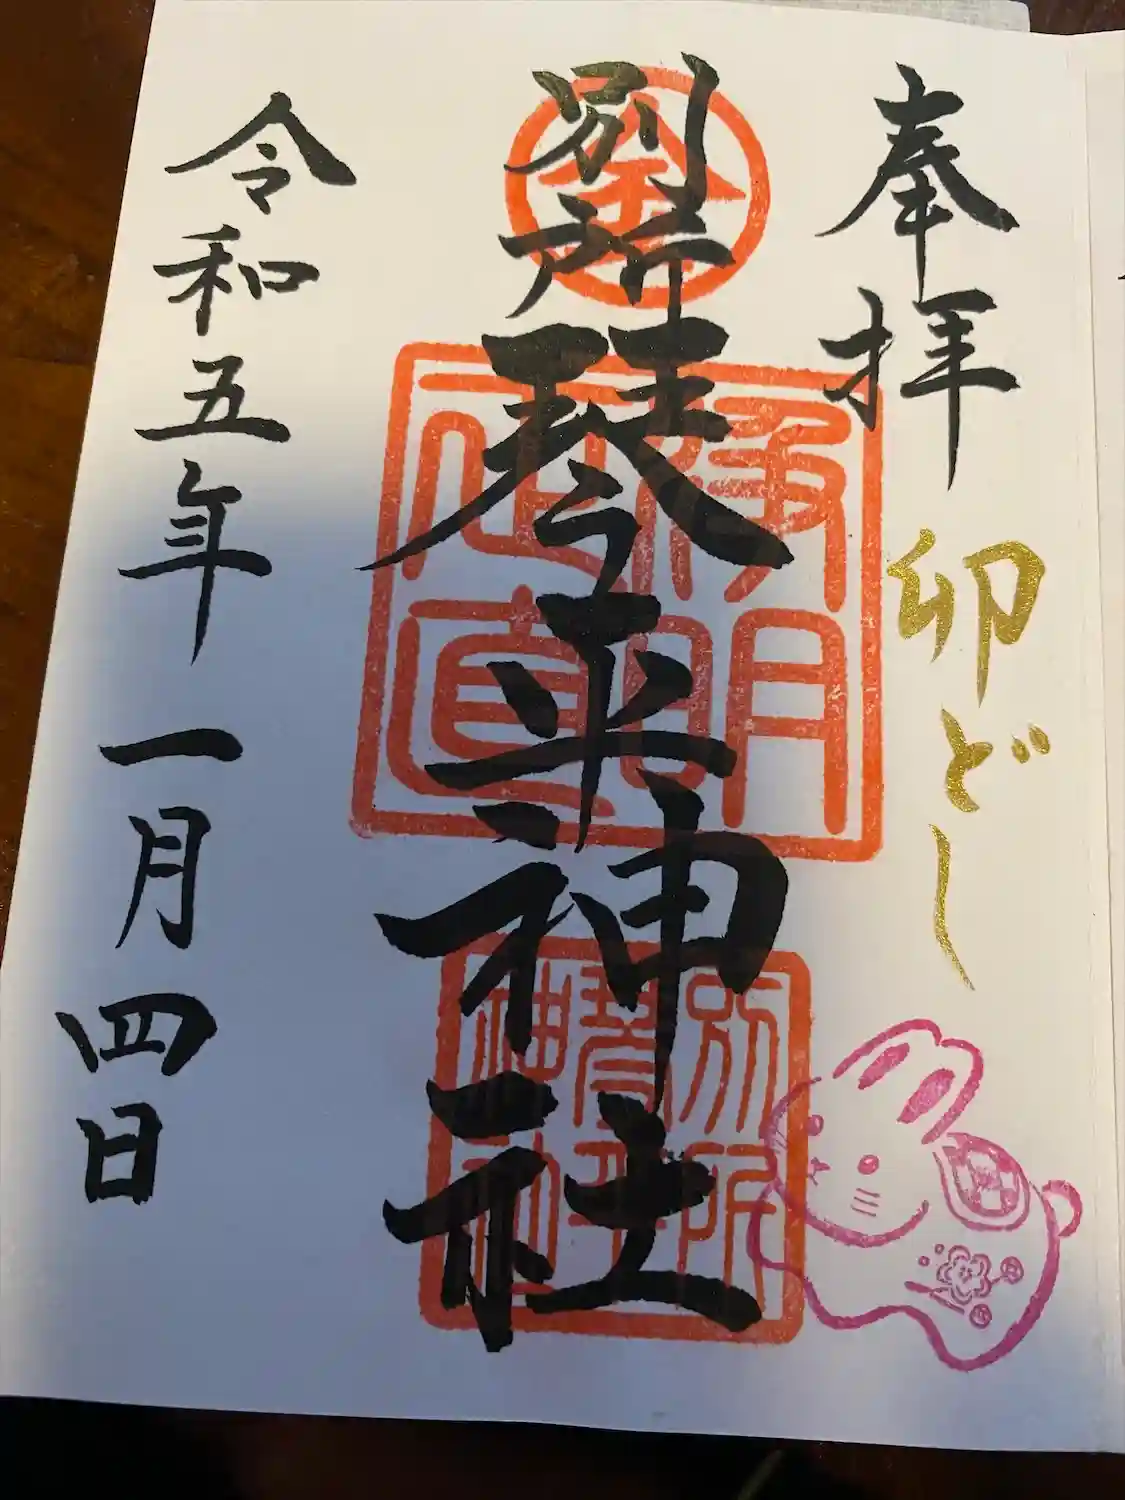 奉拝
卯どし
別所
琴平神社
令和五年一月四日
金
浄明
正直
別所
琴平
神社